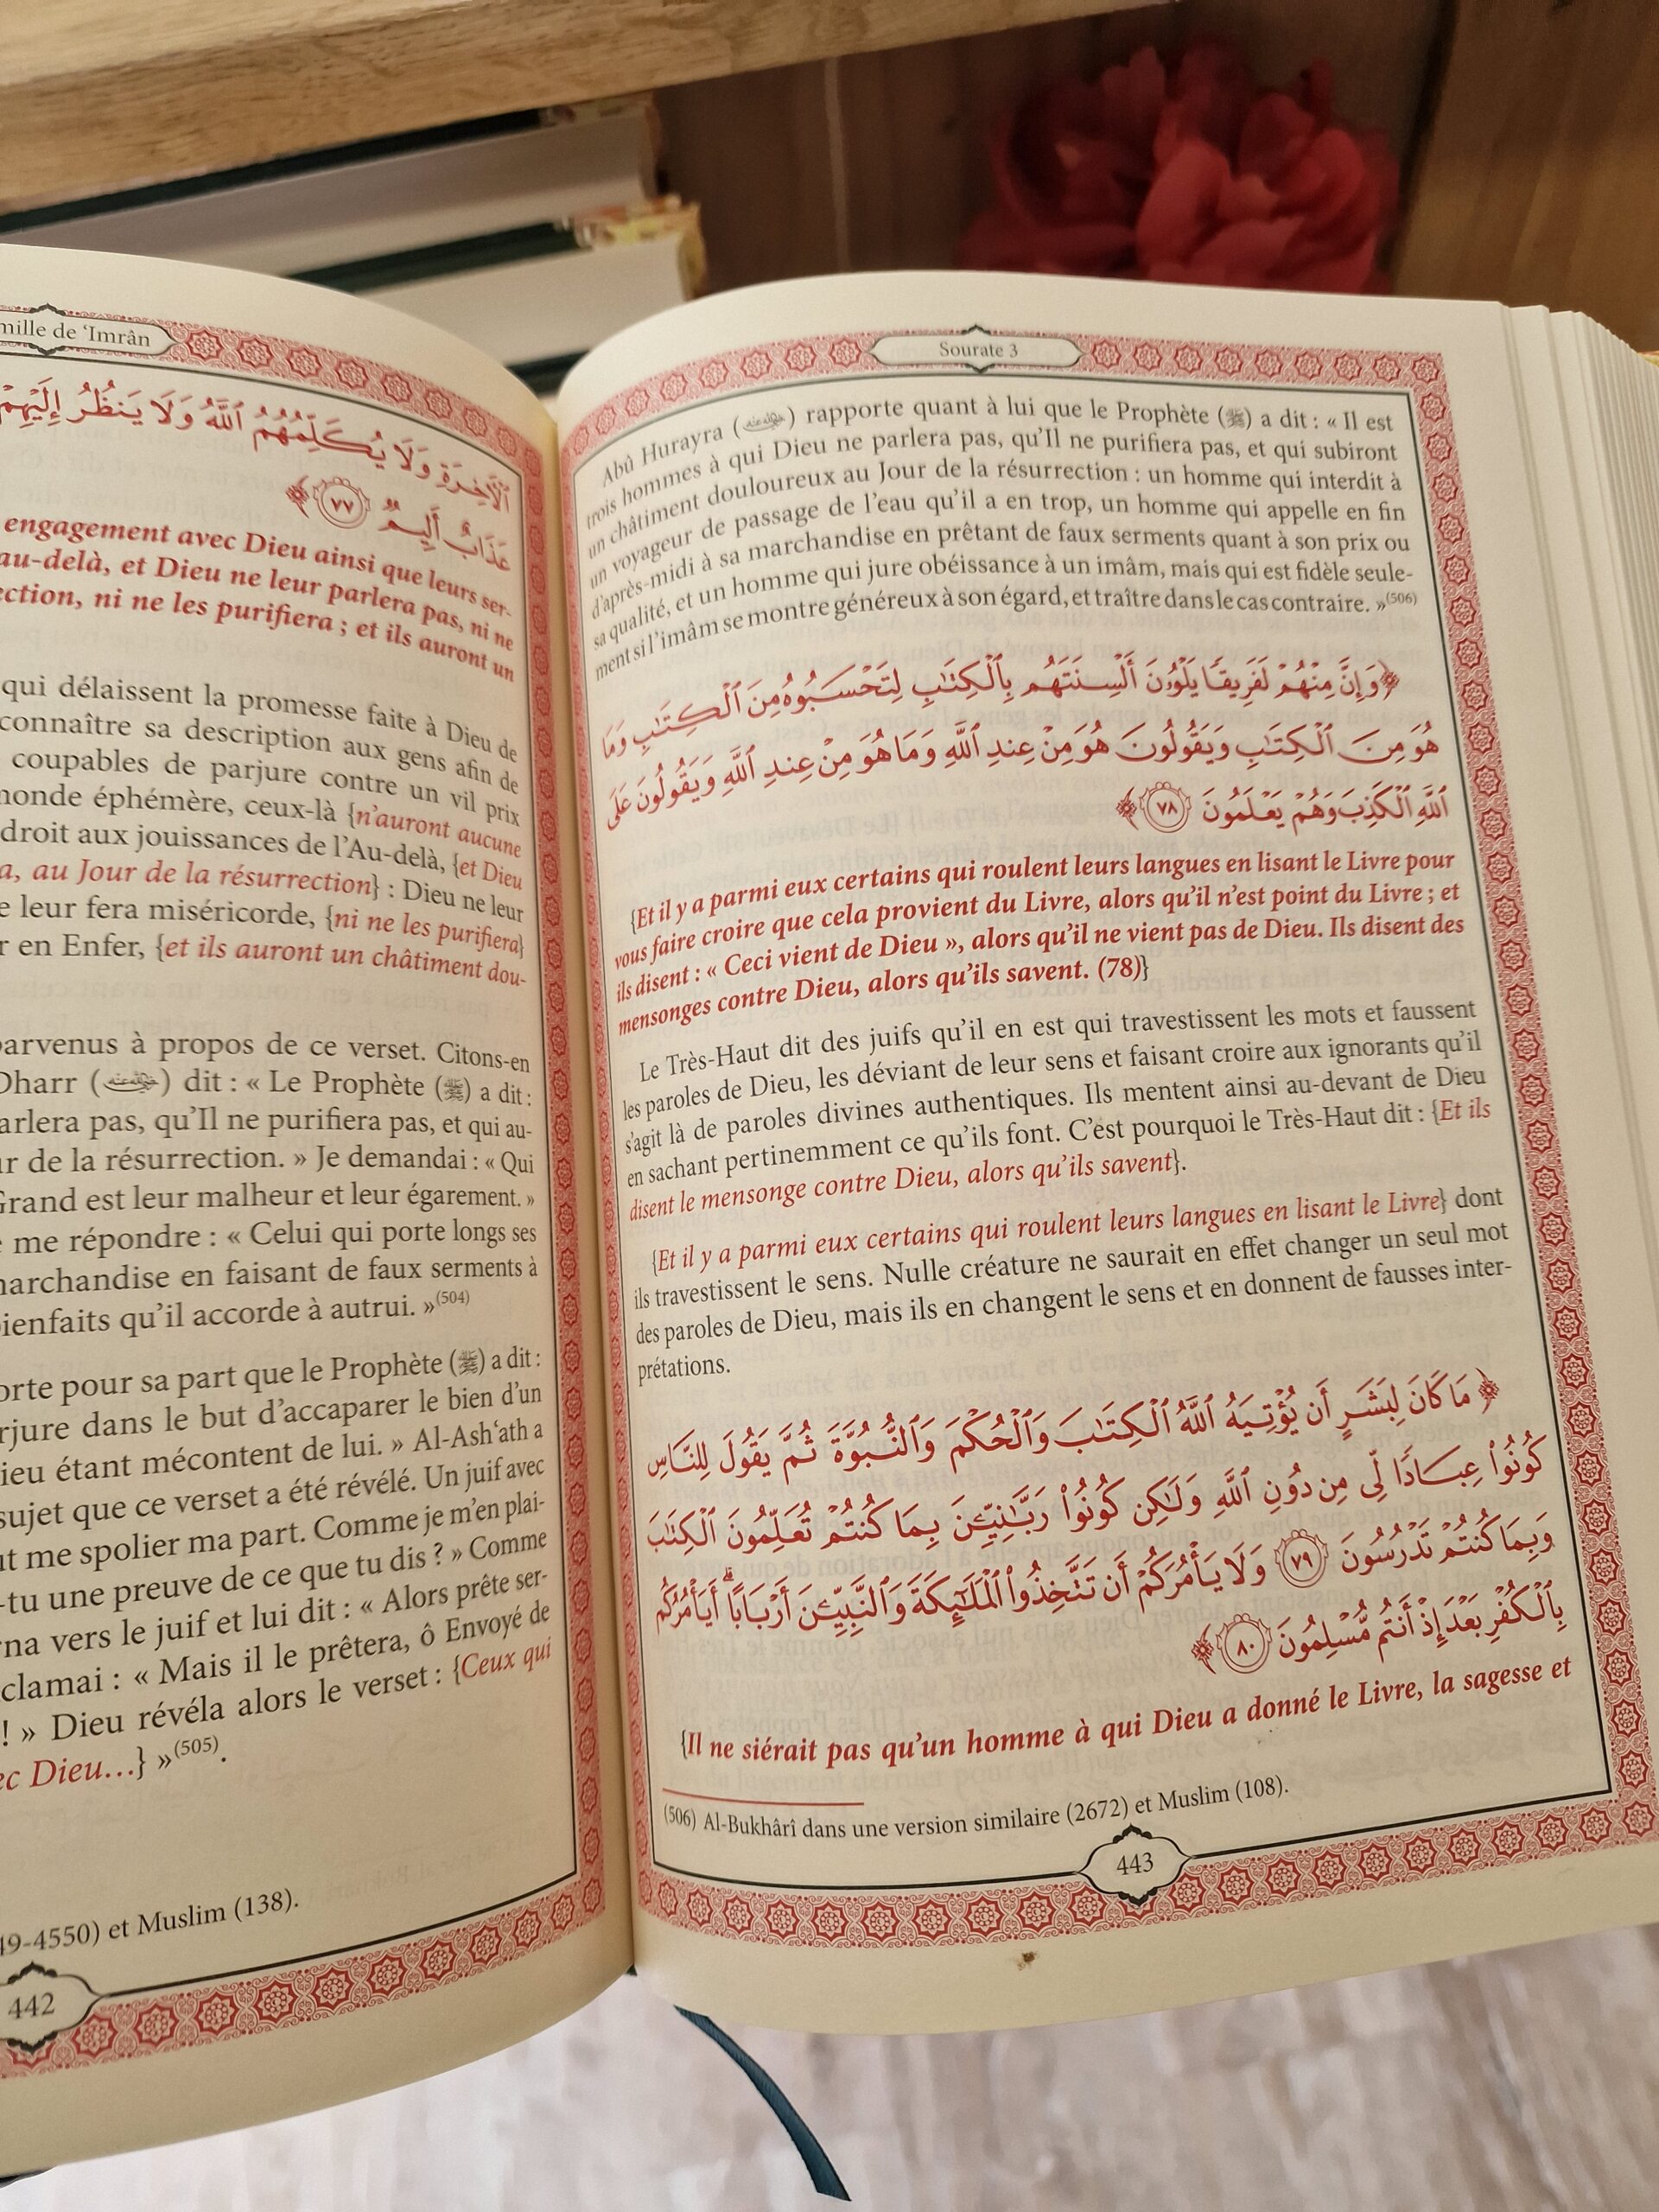 mille de ‘Imrân
ٱلۡأٓخِرَةِ وَلَا يُكَلِّمُهُمُ ٱللَّهُ وَلَا يَنظُرُ إِلَيۡهِمۡ
عَذَابٌ أَلِيمٌ ٧٧
engagement avec Dieu ainsi que leurs ser-
au-delà, et Dieu ne leur parlera pas, ni ne
ection, ni ne les purifiera ; et ils auront un
qui délaissent la promesse faite à Dieu de
connaître sa description aux gens afin de
coupables de parjure contre un vil prix
monde éphémère, ceux-là {n’auront aucune
droit aux jouissances de l’Au-delà, {et Dieu
a, au Jour de la résurrection} : Dieu ne leur
e leur fera miséricorde, {ni ne les purifiera}
r en Enfer, {et ils auront un châtiment dou-
parvenus à propos de ce verset. Citons-en
Dharr (رضي الله عنه) dit : « Le Prophète (ﷺ) a dit :
arlera pas, qu’Il ne purifiera pas, et qui au-
ur de la résurrection. » Je demandai : « Qui
Grand est leur malheur et leur égarement. »
e me répondre : « Celui qui porte longs ses
marchandise en faisant de faux serments à
bienfaits qu’il accorde à autrui. »(504)
orte pour sa part que le Prophète (ﷺ) a dit :
rjure dans le but d’accaparer le bien d’un
ieu étant mécontent de lui. » Al-Ash‘ath a
sujet que ce verset a été révélé. Un juif avec
ut me spolier ma part. Comme je m’en plai-
-tu une preuve de ce que tu dis ? » Comme
rna vers le juif et lui dit : « Alors prête ser-
clamai : « Mais il le prêtera, ô Envoyé de
! » Dieu révéla alors le verset : {Ceux qui
ec Dieu…} »(505).
49-4550) et Muslim (138).
442
Sourate 3
Abû Hurayra (رضي الله عنه) rapporte quant à lui que le Prophète (ﷺ) a dit : « Il est
trois hommes à qui Dieu ne parlera pas, qu’Il ne purifiera pas, et qui subiront
un châtiment douloureux au Jour de la résurrection : un homme qui interdit à
un voyageur de passage de l’eau qu’il a en trop, un homme qui appelle en fin
d’après-midi à sa marchandise en prêtant de faux serments quant à son prix ou
sa qualité, et un homme qui jure obéissance à un imâm, mais qui est fidèle seule-
ment si l’imâm se montre généreux à son égard, et traître dans le cas contraire. »(506)
﴿وَإِنَّ مِنۡهُمۡ لَفَرِيقٗا يَلۡوُۥنَ أَلۡسِنَتَهُم بِٱلۡكِتَٰبِ لِتَحۡسَبُوهُ مِنَ ٱلۡكِتَٰبِ وَمَا
هُوَ مِنَ ٱلۡكِتَٰبِ وَيَقُولُونَ هُوَ مِنۡ عِندِ ٱللَّهِ وَمَا هُوَ مِنۡ عِندِ ٱللَّهِ وَيَقُولُونَ عَلَى
ٱللَّهِ ٱلۡكَذِبَ وَهُمۡ يَعۡلَمُونَ ٧٨﴾
{Et il y a parmi eux certains qui roulent leurs langues en lisant le Livre pour
vous faire croire que cela provient du Livre, alors qu’il n’est point du Livre ; et
ils disent : « Ceci vient de Dieu », alors qu’il ne vient pas de Dieu. Ils disent des
mensonges contre Dieu, alors qu’ils savent. (78)}
Le Très-Haut dit des juifs qu’il en est qui travestissent les mots et faussent
les paroles de Dieu, les déviant de leur sens et faisant croire aux ignorants qu’il
s’agit là de paroles divines authentiques. Ils mentent ainsi au-devant de Dieu
en sachant pertinemment ce qu’ils font. C’est pourquoi le Très-Haut dit : {Et ils
disent le mensonge contre Dieu, alors qu’ils savent}.
{Et il y a parmi eux certains qui roulent leurs langues en lisant le Livre} dont
ils travestissent le sens. Nulle créature ne saurait en effet changer un seul mot
des paroles de Dieu, mais ils en changent le sens et en donnent de fausses inter-
prétations.
﴿مَا كَانَ لِبَشَرٍ أَن يُؤۡتِيَهُ ٱللَّهُ ٱلۡكِتَٰبَ وَٱلۡحُكۡمَ وَٱلنُّبُوَّةَ ثُمَّ يَقُولَ لِلنَّاسِ
كُونُواْ عِبَادٗا لِّي مِن دُونِ ٱللَّهِ وَلَٰكِن كُونُواْ رَبَّٰنِيِّـۧنَ بِمَا كُنتُمۡ تُعَلِّمُونَ ٱلۡكِتَٰبَ
وَبِمَا كُنتُمۡ تَدۡرُسُونَ ٧٩ وَلَا يَأۡمُرَكُمۡ أَن تَتَّخِذُواْ ٱلۡمَلَٰٓئِكَةَ وَٱلنَّبِيِّـۧنَ أَرۡبَابًاۗ أَيَأۡمُرُكُم
بِٱلۡكُفۡرِ بَعۡدَ إِذۡ أَنتُم مُّسۡلِمُونَ ٨٠﴾
{Il ne siérait pas qu’un homme à qui Dieu a donné le Livre, la sagesse et
(506) Al-Bukhârî dans une version similaire (2672) et Muslim (108).
443